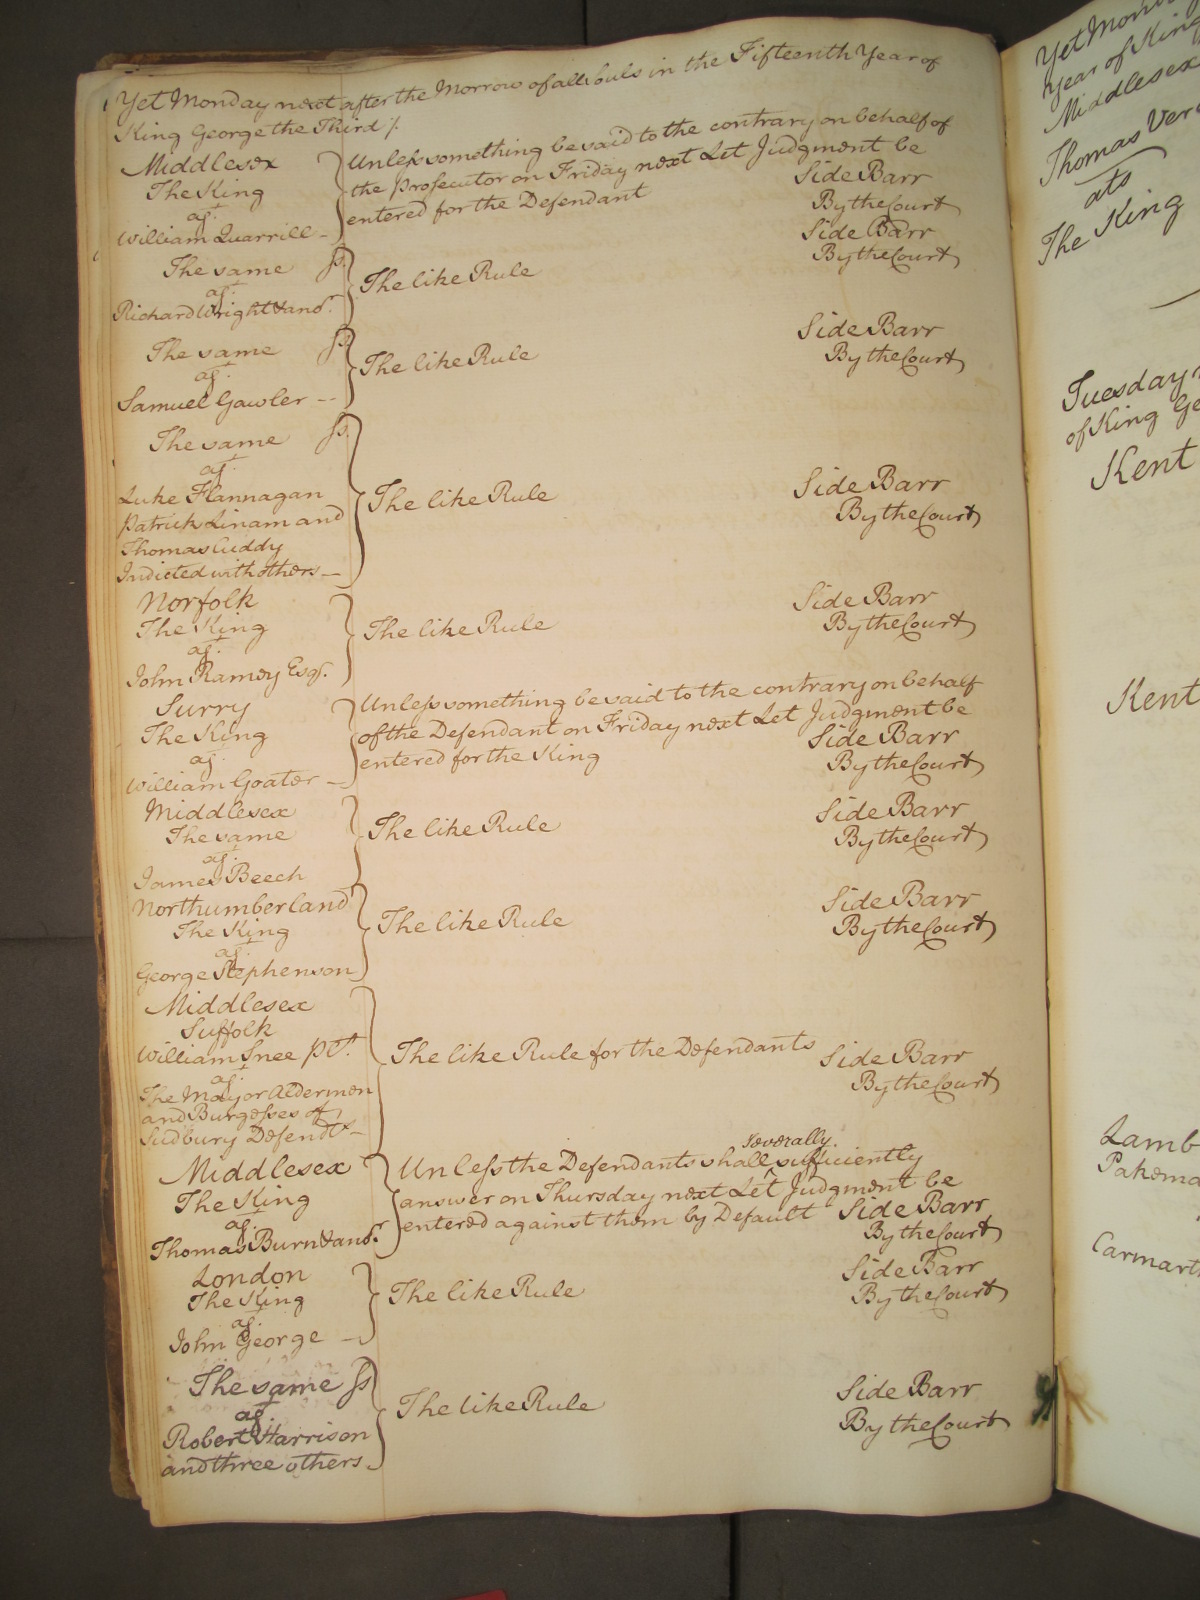 Yet Monday next after the Morrow of all Souls in the Fifteenth Year of
King George the Third /.
Middlesex
The King
agt.
William Quarrill -
Unless something be said to the contrary on behalf of
the prosecutor on Friday next Let Judgment be
entered for the Defendant
Side Barr
By the Court
Side Barr
By the Court
The same ss.
agt.
Richard Wright & anor.
The like Rule
The same ss.
agt.
Samuel Gawler --
The like Rule
Side Barr
By the Court
The same ss.
agt.
Luke Flannagan
Patrick Linam and
Thomas Cuddy
Indicted with others -
The like Rule
Side Barr
By the Court
Norfolk
The King
agt.
John Ramey Esqr.
The like Rule
Side Barr
By the Court
Surry
The King
agt.
William Goater -
Unless something be said to the contrary on behalf
of the Defendant on Friday next Let Judgment be
entered for the King
Side Barr
By the Court
Middlesex
The same
agt.
James Beech
The like Rule
Side Barr
By the Court
Northumberland
The King
agt.
George Stephenson
The like Rule
Side Barr
By the Court
Middlesex
Suffolk
William Snee plt.
agt.
The Mayor Aldermen
and Burgesses of
Sudbury Defendts -
The like Rule for the Defendants
Side Barr
By the Court
Middlesex
The King
agt.
Thomas Burn & anor.
Unless the Defendants shall severally sufficiently
answer on Thursday next Let Judgment be
entered against them by Default
Side Barr
By the Court
London
The King
agt.
John George -
The like Rule
Side Barr
By the Court
The same ss
agt.
Robert Harrison
and three others.
The like Rule
Side Barr
By the Court
Year of King
Middlesex
Thomas
ats
The King
Tuesday
of King
Kent
Kent